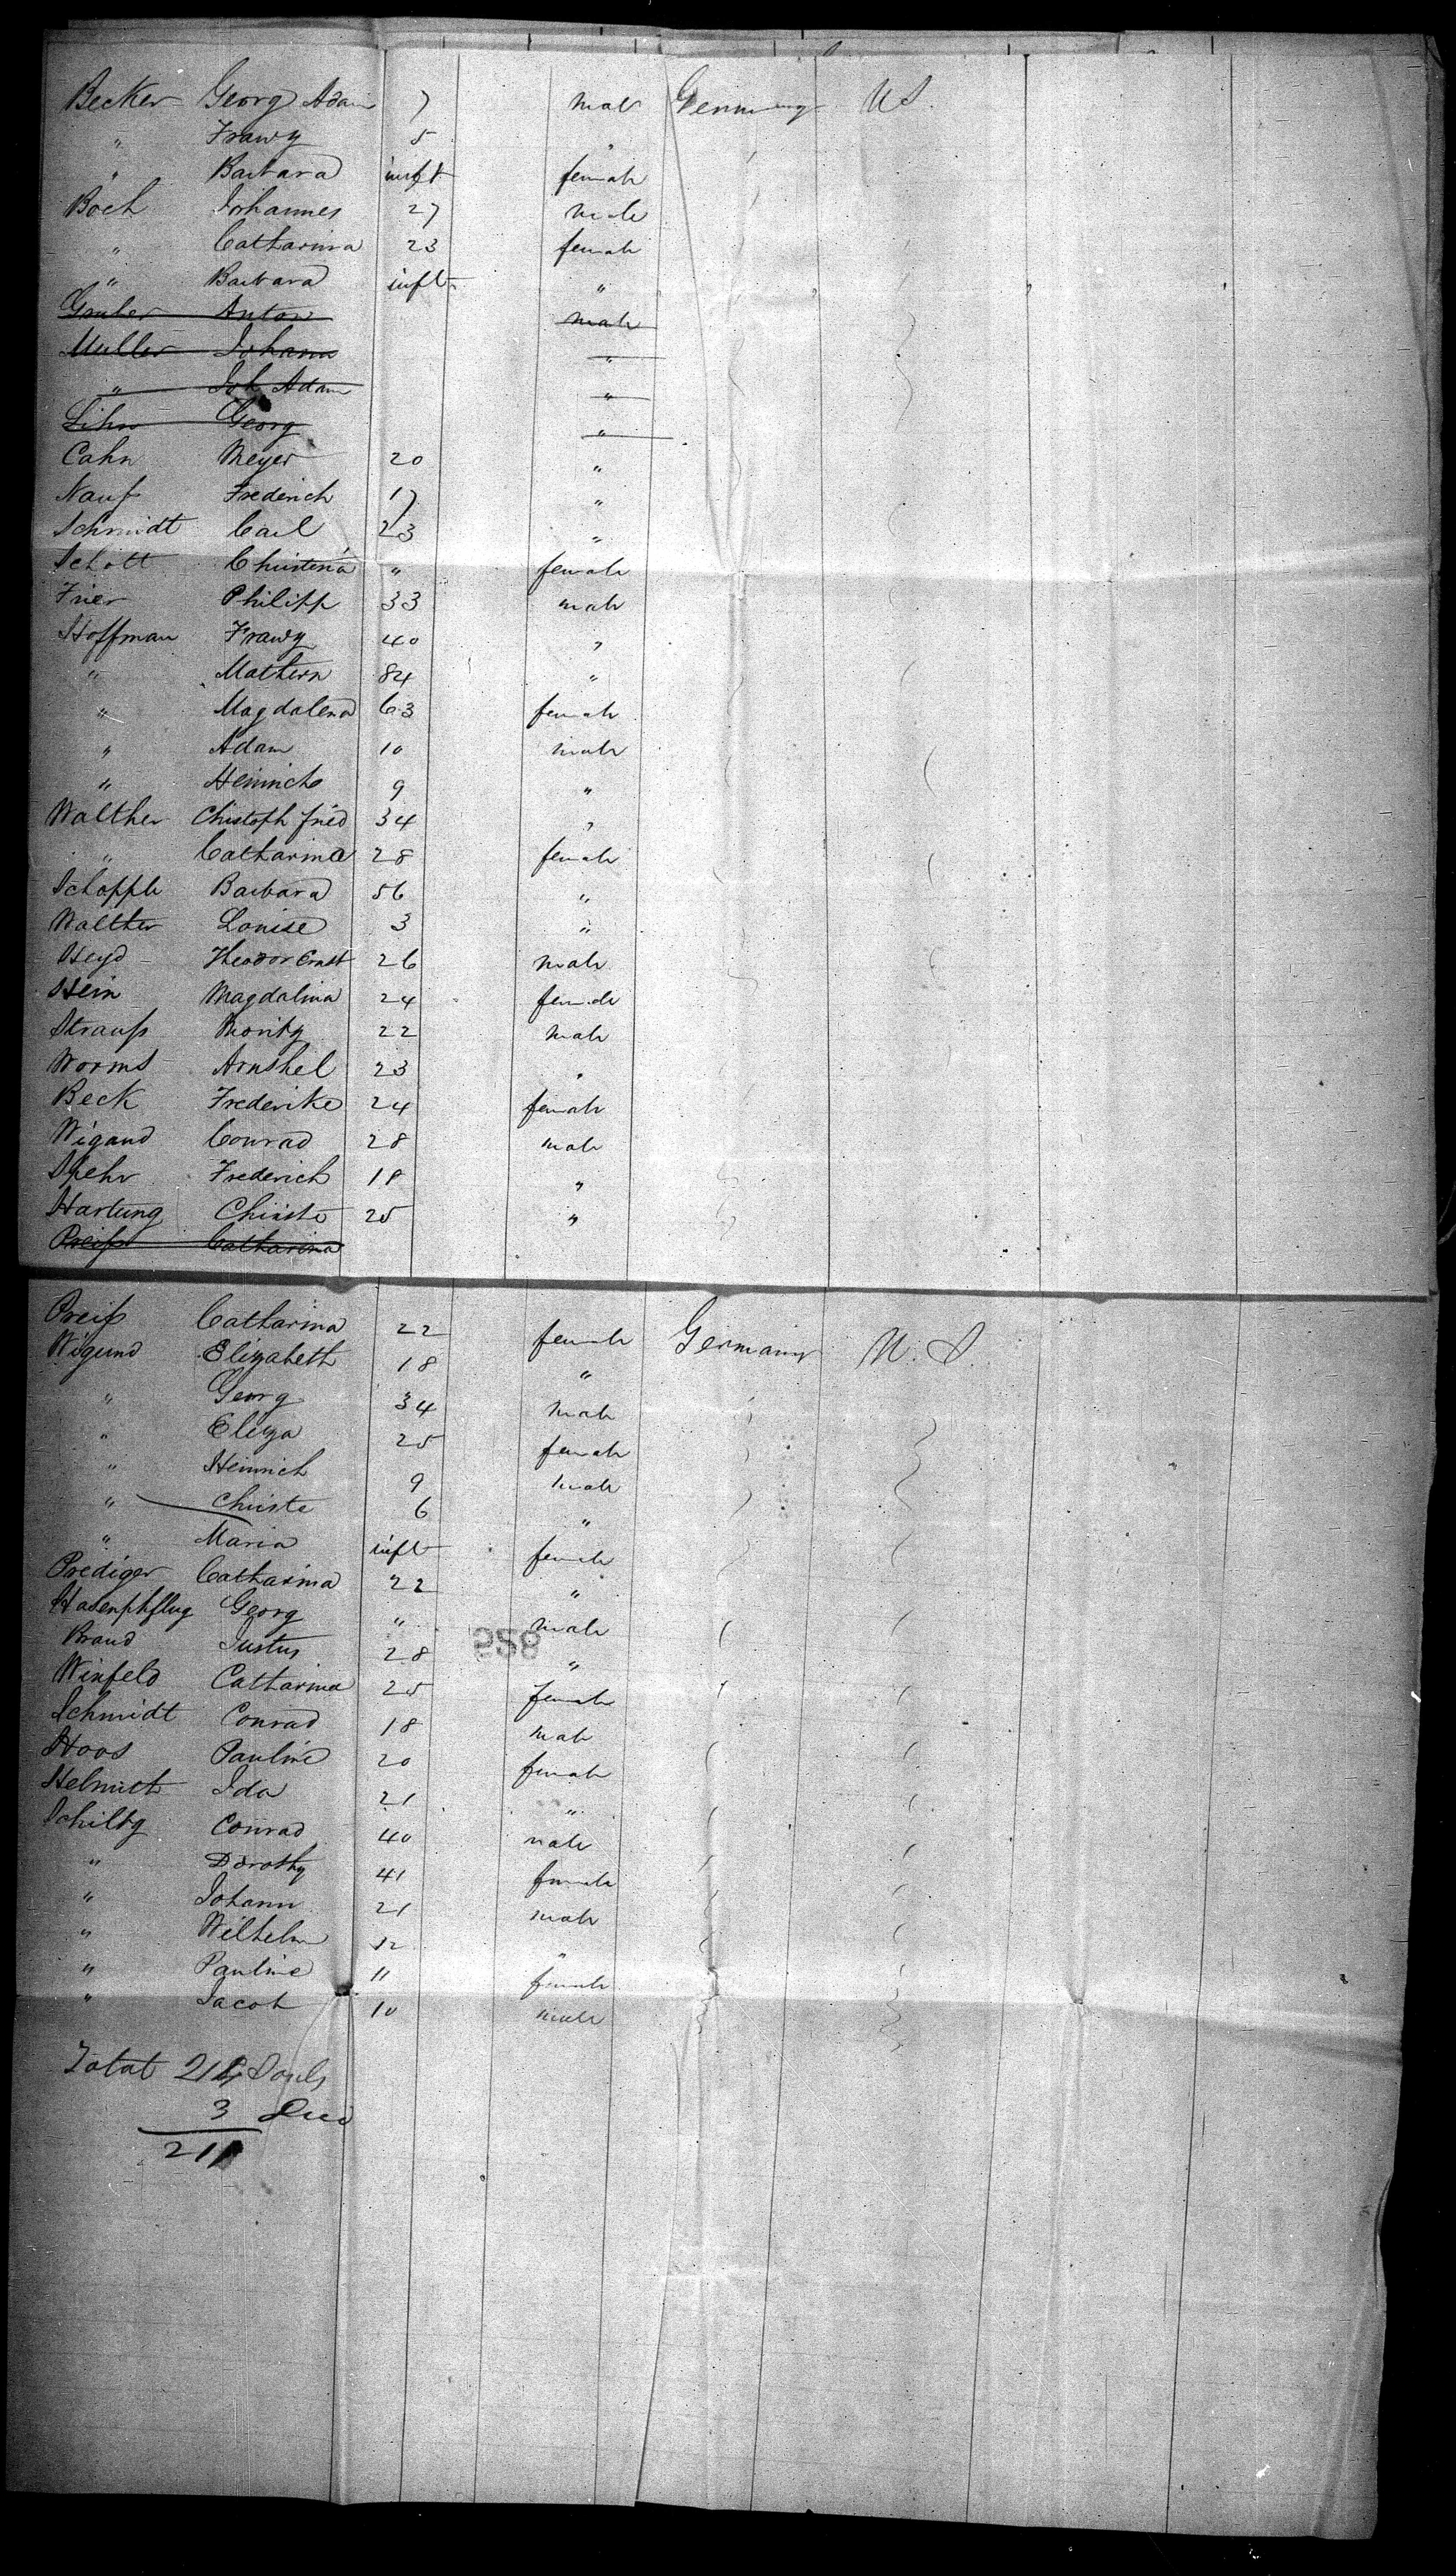 Becker Georg Adam 7 male Germany U S.
" Franz 5 "
" Barbara inft female
Boch Johannes 27 male
" Catharina 23 female
" Barbara inft "
Gruber Anton male
Muller Johann "
" Joh Adam "
Lihn Georg "
Cahn Meyer 20 "
Nauß Frederich 17 "
Schmidt Carl 23 "
Schott Christina " female
Frier Philipp 33 male
Hoffman Franz 40 "
" Mathern 84 "
" Magdalena 63 female
" Adam 10 male
" Heinrich 9 "
Walther Christoph Fried 34 "
" Catharina 28 female
Schopple Barbara 56 "
Walther Louise 3 "
Heyd Theodor Ernst 26 male
Hein Magdalina 24 female
Strauß Moritz 22 male
Worms Amshel 23 "
Beck Frederike 24 female
Wigand Conrad 28 male
Spehr Frederich 18 "
Hartung Christe 25 "
Preiß Catharina
Preiß Catharina 22 female Germany U. S.
Wigund Elizabeth 18 "
" Georg 34 male
" Eliza 25 female
" Heinrich 9 male
" Christe 6 "
" Maria inft female
Prediger Catharina 22 "
Hasenphflug Georg " male
Brand Justus 28 "
Winfeld Catharina 25 female
Schmidt Conrad 18 male
Hoos Pauline 20 female
Helmuth Ida 21 "
Schiltz Conrad 40 male
" Dorothy 41 female
" Johann 21 male
" Wilhelm 12 "
" Pauline 11 female
" Jacob 10 male
Total 214 Souls
3 Died
211